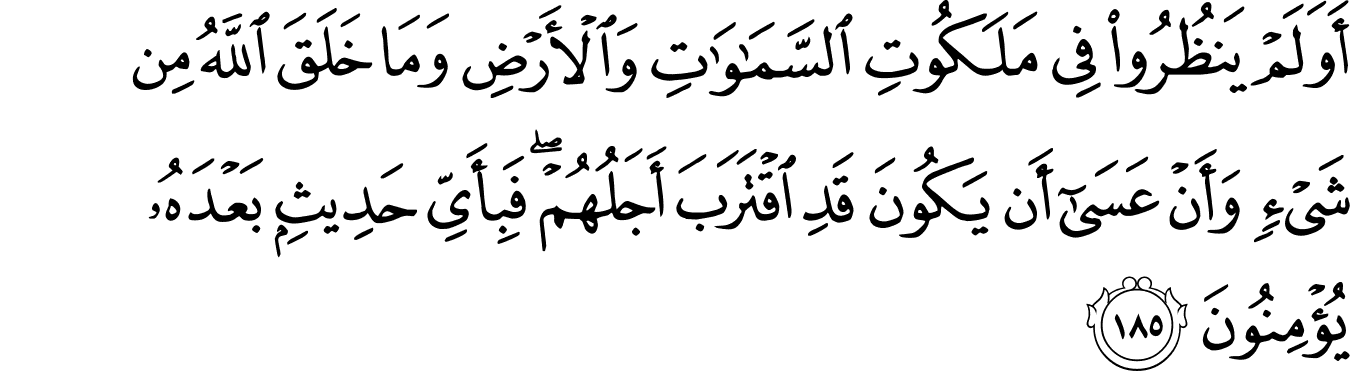 أَوَلَمْ يَنظُرُوا۟ فِى مَلَكُوتِ ٱلسَّمَـٰوَٰتِ وَٱلْأَرْضِ وَمَا خَلَقَ ٱللَّهُ مِن
شَىْءٍ وَأَنْ عَسَىٰٓ أَن يَكُونَ قَدِ ٱقْتَرَبَ أَجَلُهُمْ ۖ فَبِأَىِّ حَدِيثٍۭ بَعْدَهُۥ
يُؤْمِنُونَ ١٨٥